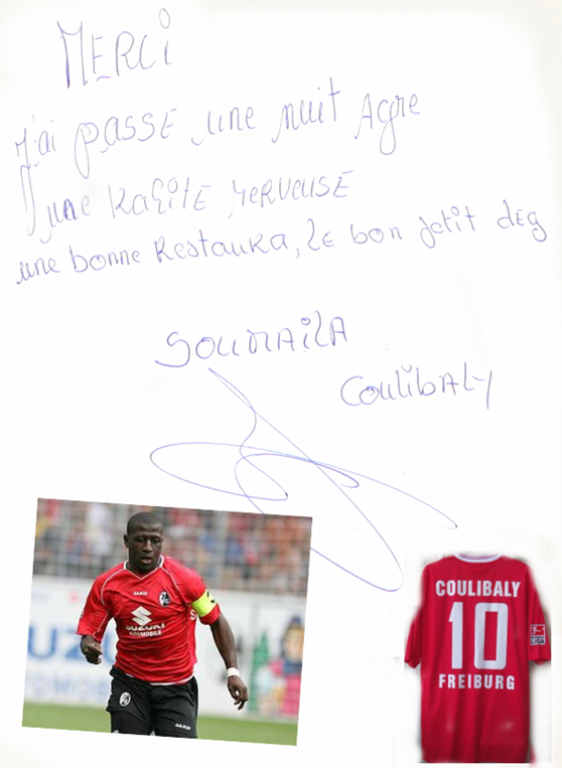 MERCI
J'ai PASSE une nuit Agre
une KAfiTE MERVEUSE
une bonne RestauRA, LE bon petit deg
SOUMAILA
COULIBALY
SUZUKI
AUTOMOBILE
JAKO
JAKO
COULIBALY
10
FREIBURG